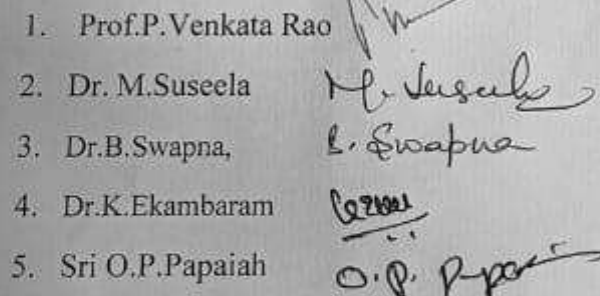 1. Prof.P.Venkata Rao
2. Dr. M.Suseela M. Suseela
3. Dr.B.Swapna, B. Swapna
4. Dr.K.Ekambaram
5. Sri O.P.Papaiah O.P. Papaiah